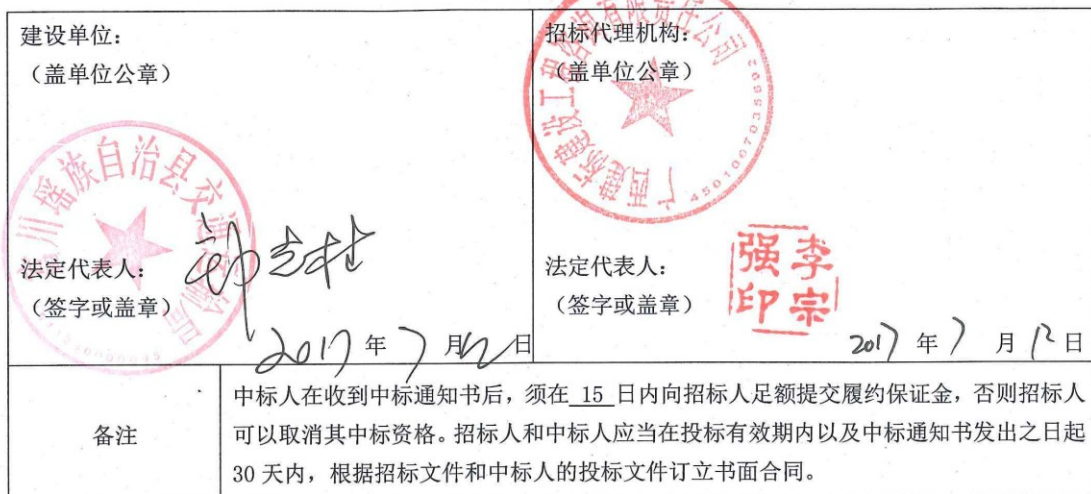 建设单位：
（盖单位公章）
川瑶族自治县交通运输局
法定代表人：
（签字或盖章）
2017年7月12日
招标代理机构：
（盖单位公章）
法定代表人：
（签字或盖章）
李宗强印
2017年7月12日
备注
中标人在收到中标通知书后，须在 15 日内向招标人足额提交履约保证金，否则招标人
可以取消其中标资格。招标人和中标人应当在投标有效期内以及中标通知书发出之日起
30 天内，根据招标文件和中标人的投标文件订立书面合同。